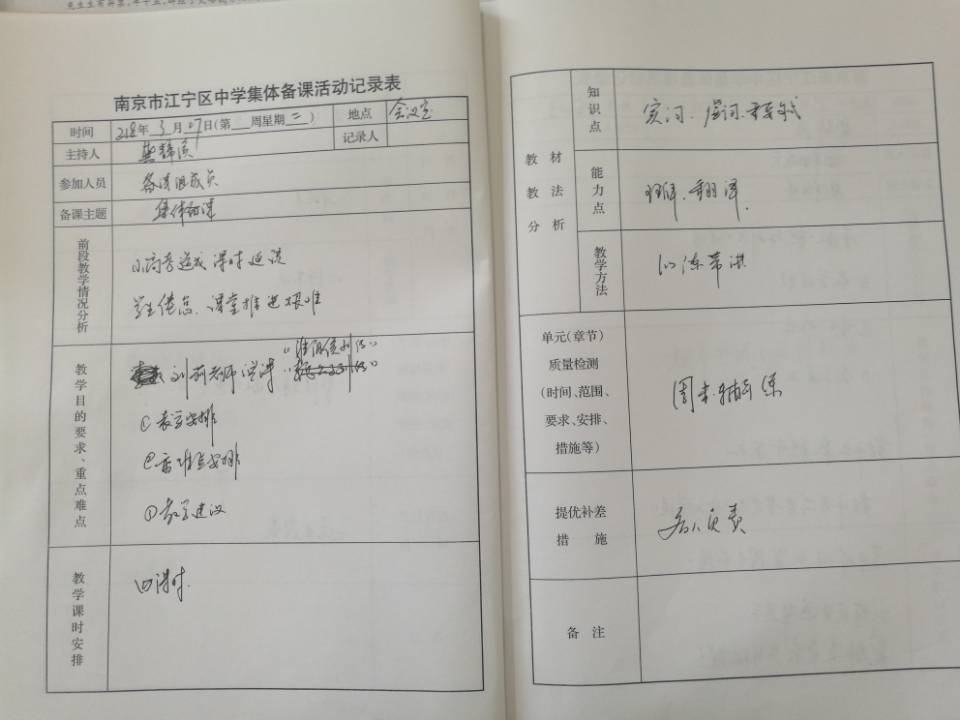 南京市江宁区中学集体备课活动记录表
时间 218年 3月07日(第 周星期二) 地点 会议室
主持人 记录人
参加人员 备课组成员
备课主题 集体备课
前段教学情况分析
小高考造成课时延误
学生倦怠、课堂推进艰难
教学目的要求、重点难点
刘前老师 "淮阴侯列传"
教学安排
安排
教学建议
教学课时安排
四课时
教材教法分析
知识点
实词、虚词、
能力点
理解、翻译
教学方法
讲练带
单元(章节)
质量检测
(时间、范围、
要求、安排、
措施等)
周末练
提优补差
措 施
各人负责
备 注